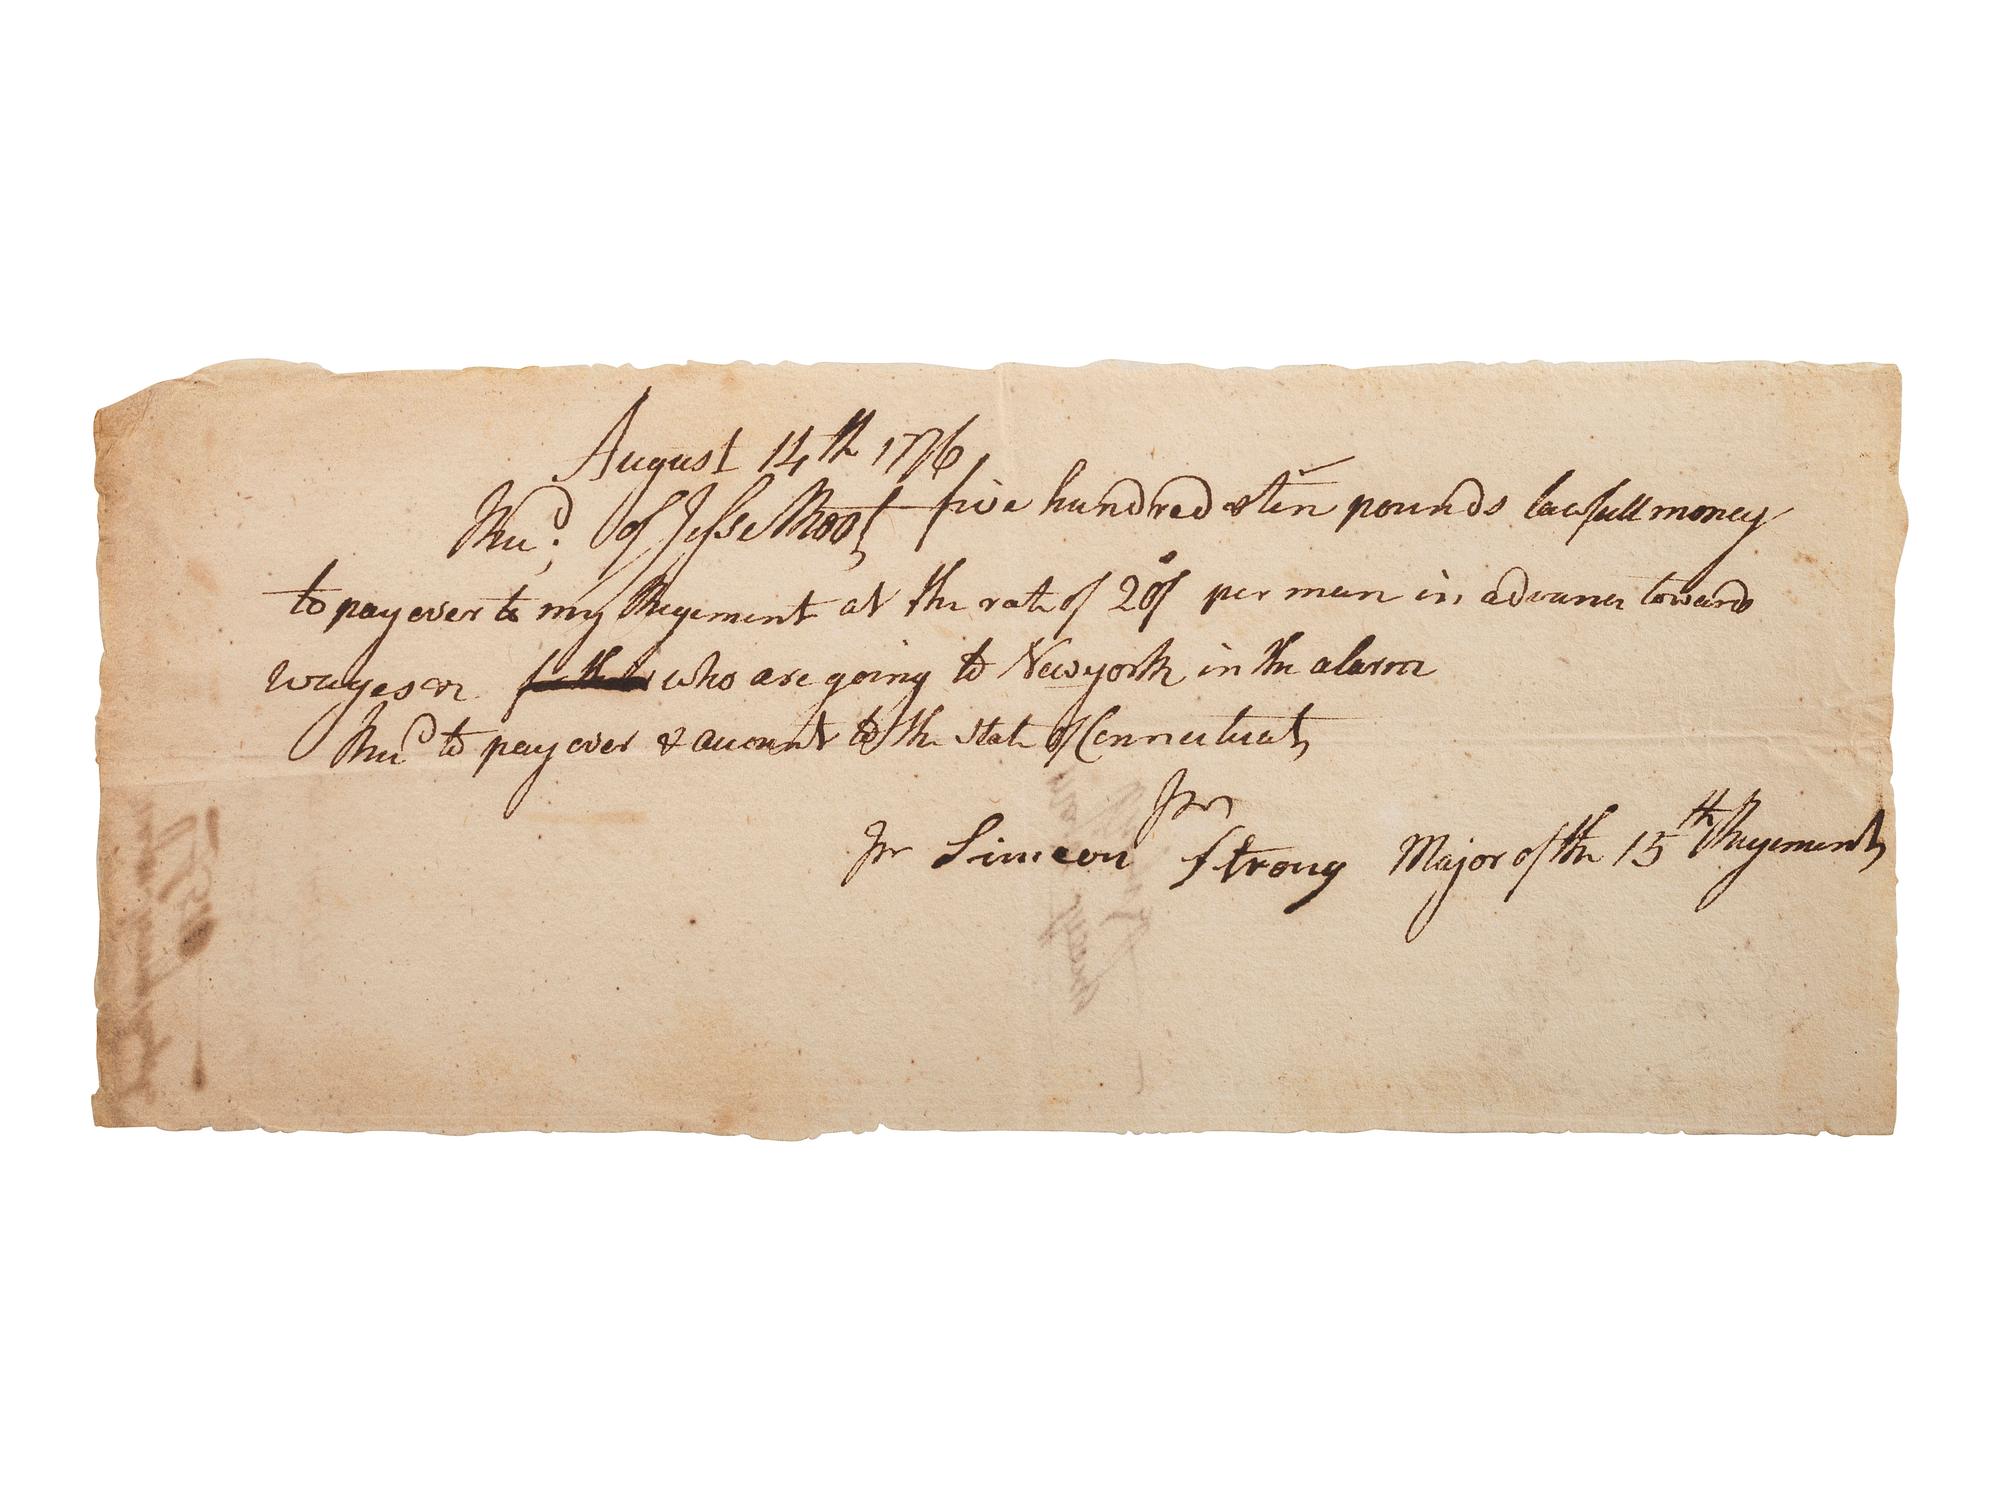 August 14th 1776
Recd. of Jesse Root five hundred & ten pounds lawfull money
to pay over to my Regement at the rate of 20s/ per man in advance towards
wages &c who are going to Newyork in the alarm
Recd to pay over & account to the State of Connecticut,
pr
pr Simeon Strong Major of the 15th Regement,